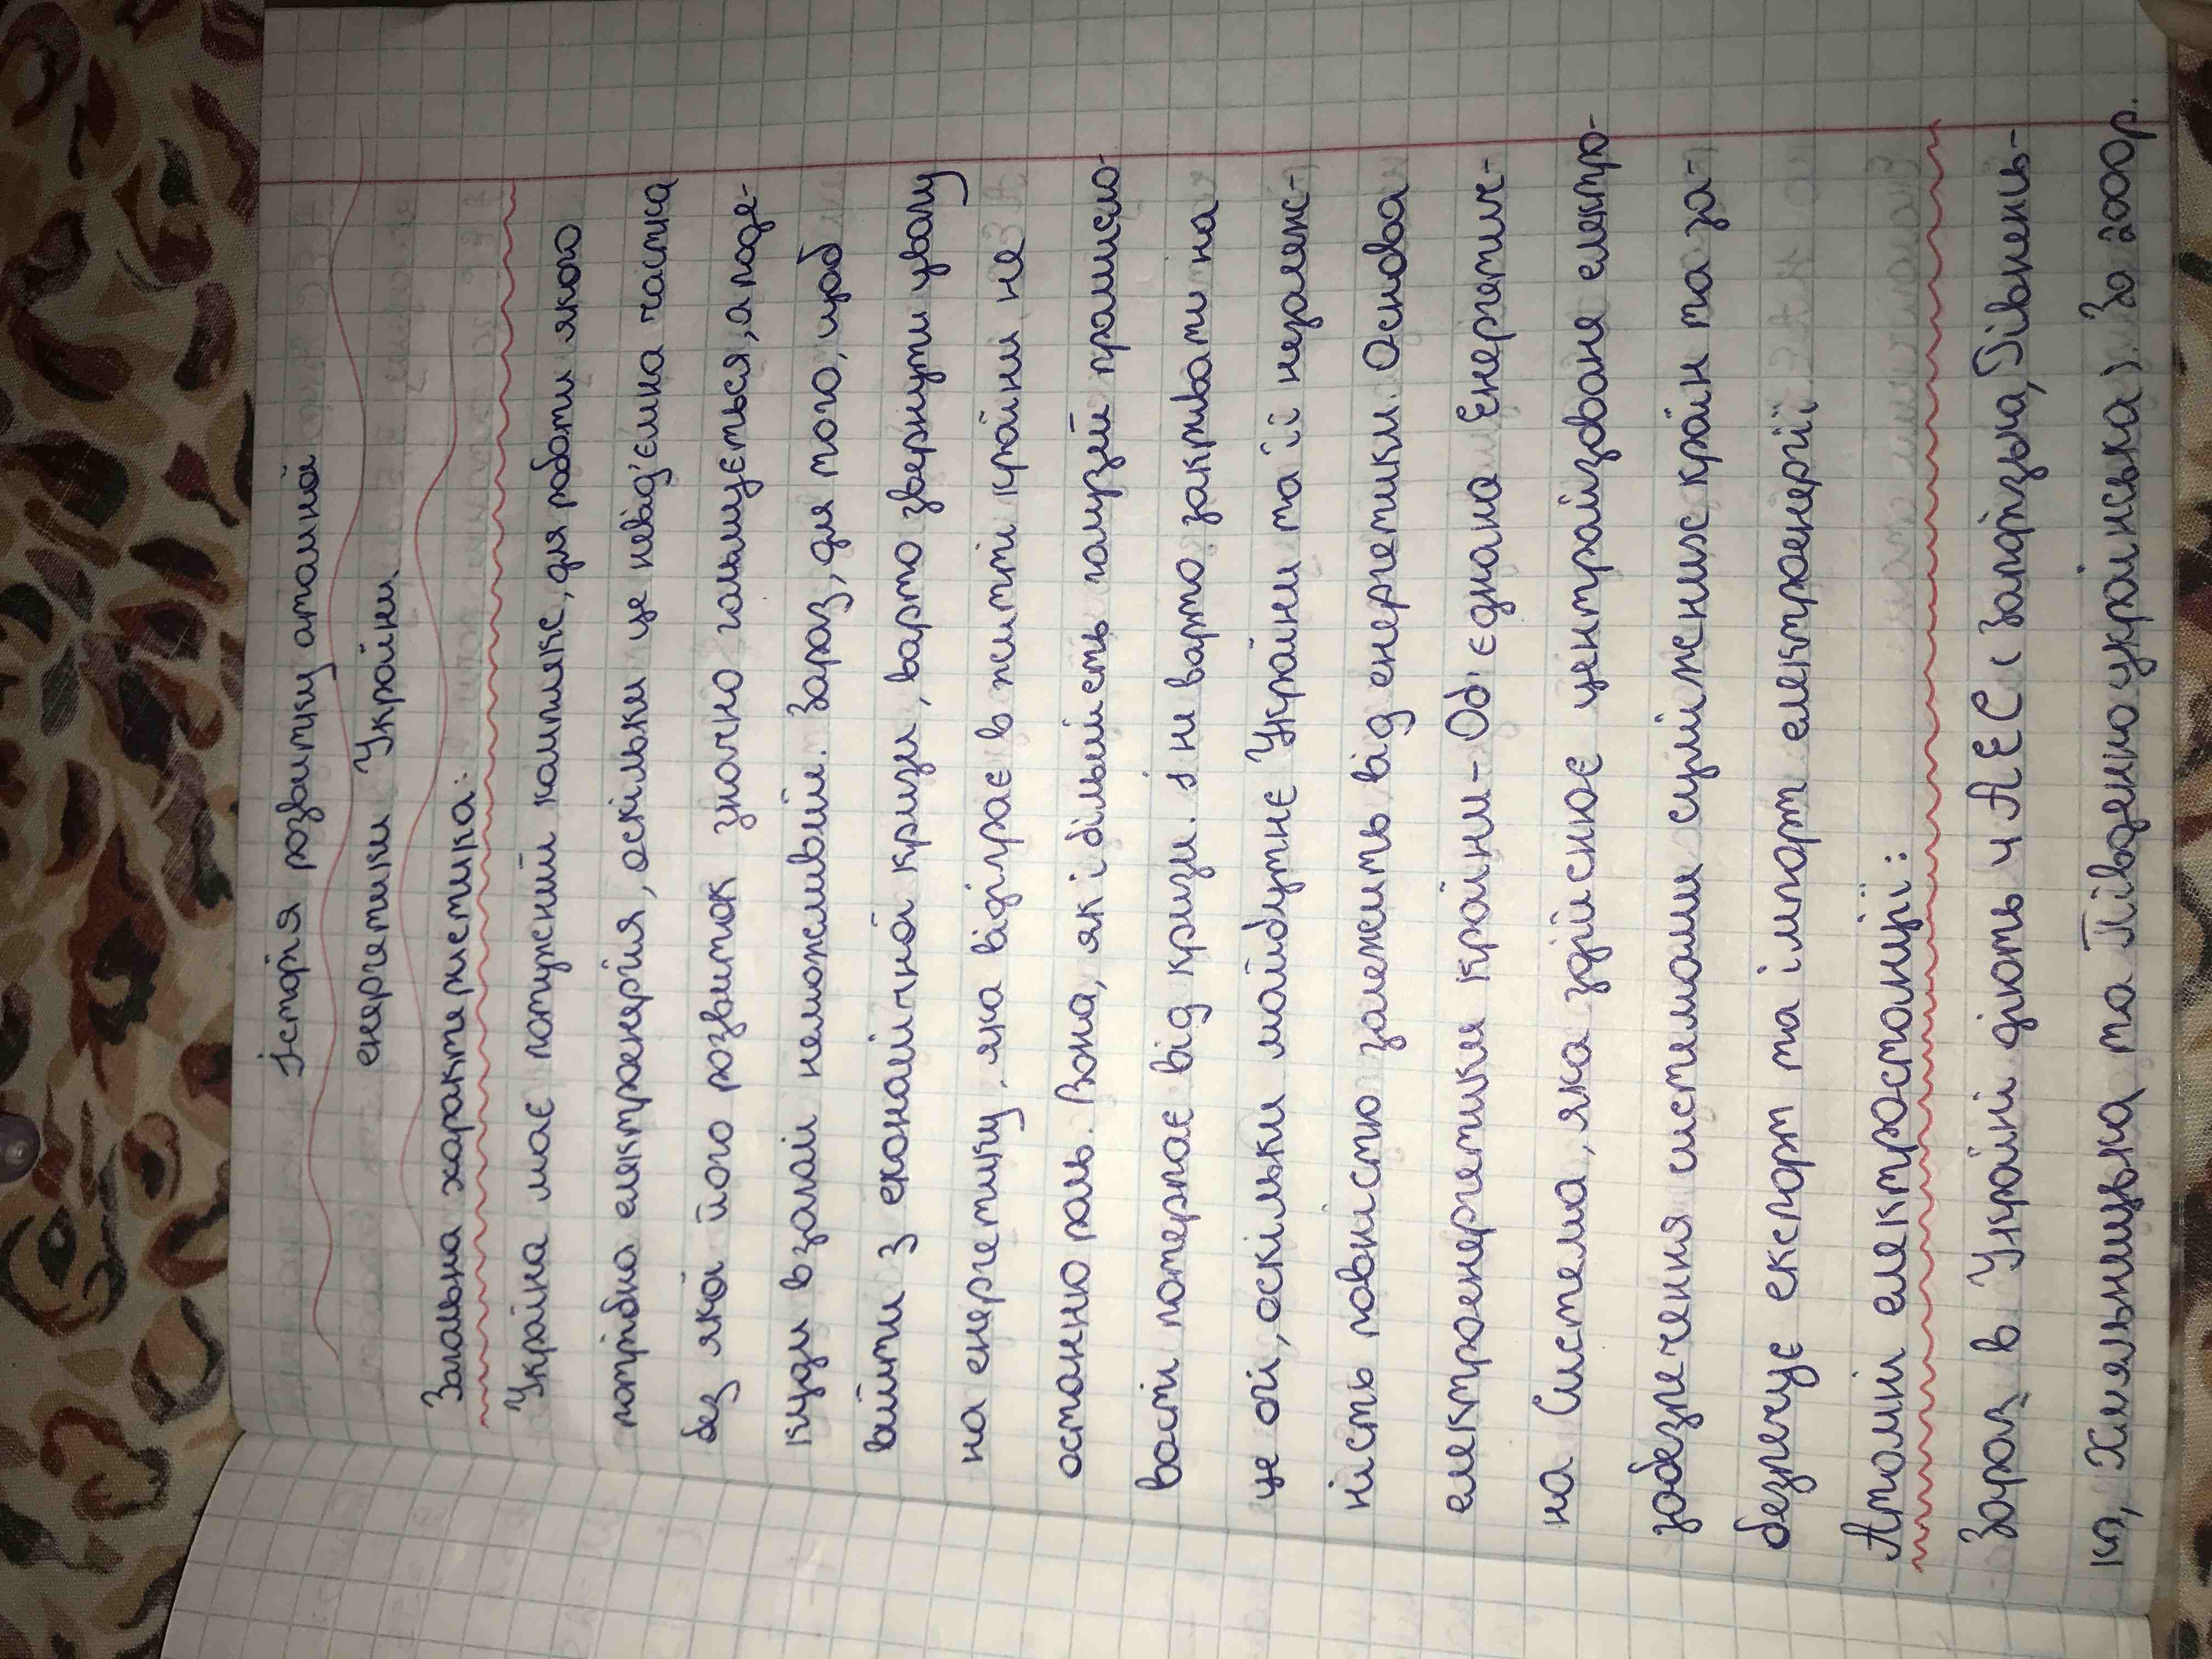 Історія розвитку атомної
енергетики України
Загальна характеристика:
Україна має потужний комплекс, для роботи якого
потрібна електроенергія, оскільки це невід'ємна частка
без якої його розвиток значно гальмується, а поде-
куди взагалі неможливий. Зараз, для того, щоб
вийти з економічної кризи, варто звернути увагу
на енергетику, яка відіграє в житті країни не
останню роль. Вона, як і більшість галузей промисло-
вості потерпає від кризи. І не варто закривати на
це очі, оскільки майбутнє України та її незалеж-
ність повністю залежить від енергетики. Основа
електроенергетики країни - Об'єднана Енергетич-
на Система, яка здійснює централізоване електро-
забезпечення системами суміжних країн та за-
безпечує експорт та імпорт електроенергії.
Атомні електростанції:
Зараз в Україні діють 4 АЕС (Запорізька, Рівнень-
ка, Хмельницька та Південноукраїнська). За 2000р.